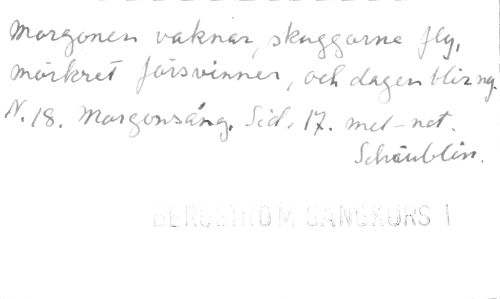 Morgonen vaknar, skuggorna fly,
mörkret försvinner, och dagen blir ny.
N. 18. Morgonsång. Sid. 17. mel-not.
Schäublin.
BERGSTRÖM SÅNGKURS I